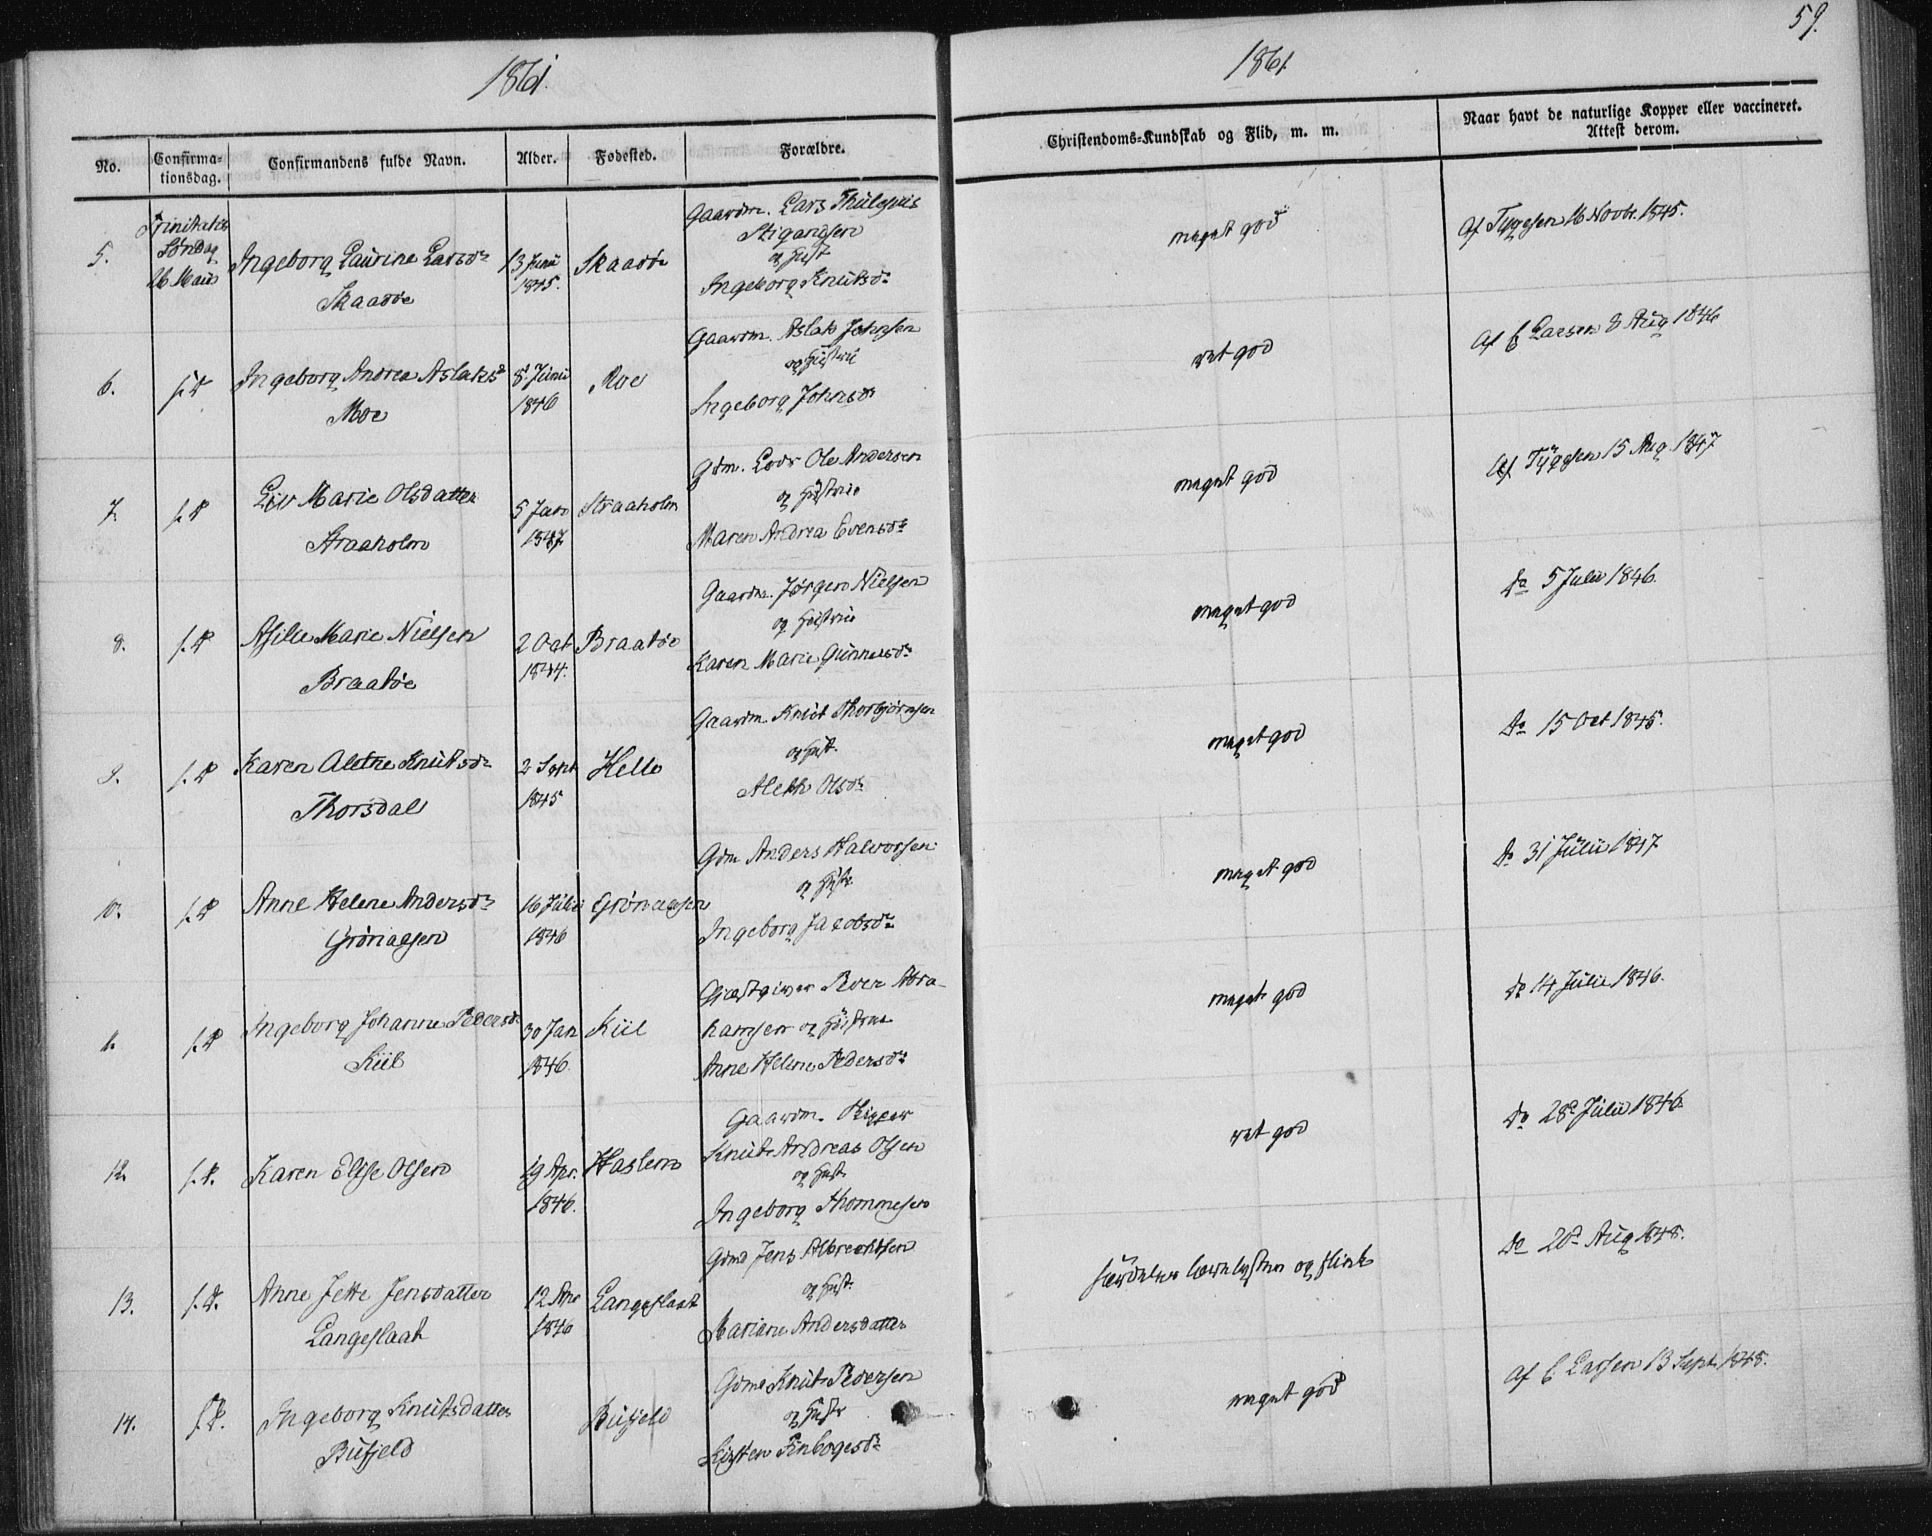 1861.
1861.
59.
No.
Confirma-
tionsdag.
Confirmandens fulde Navn.
Alder.
Fødested.
Forældre.
Christendoms-Kundskab og Flid, m. m.
Naar havt de naturlige Kopper eller vaccineret.
Attest derom.
5.
Trinitatis
Søndag
26 Maii
Ingeborg Laurine Larsdr
Skaadøe
13 Junii
1845.
Gaardm. Lars
og Hust
Ingeborg Knutsdr
meget god
Af Tygesen 16 Novbr. 1845.
6.
s. D
Ingeborg Andrea Aslaksd
Moe
8 Junii
1846
Moe
Gaardm. Aslak Johnsen
og Hustrü
Ingeborg Johnsdr
ret god
Af E Larsen 8 Aug 1846
7.
s. D
Liv Marie Olsdatter
Straaholm
5 Jan
1847
Straaholm
Gdm. Lods Ole Andersen
og Hustrüe
Maren Andrea Evensdr
meget god
Af Tygesen 15 Aug 1847
8.
s. D
Marie Nielsen
Braatøe
2 Oct
1844.
Braatøe
Gaardm. Jørgen Nielsen
og Hustrüe
Karen Marie Gunnersdr
meget god
do 5 Julii 1846.
9.
s. D
Karen Alethe Knutsdr
Thorsdal
2 Sept
1845
Helle
Gaardm. Knut Thorbjørnsen
og Hust.
Aleth Olsdr
meget god
do 15 Oct 1845.
10.
s. D
Anne Helene Andersdr
Grønaasen
16 Julii
1846
Grønaasen
Gdm Anders Halvorsen
og Hustr
Ingeborg Jacobsdr
meget god
do 31 Julii 1847
11.
s. D
Ingeborg Johanne Pedersdr
Kiil
30 Jan
1846.
Kiil
Gjæstgiver Peder Abra-
hamsen og Hustrue
Anne Helene Pedersdr
meget god
do 14 Julii 1846.
12.
s. D.
Karen Elise Olsen
19 Apr.
1846.
Haslem
Gaardm. Skipper
Knut Andreas Olsen
og Hust.
Ingeborg Thommesen
ret god
do 28de Julii 1846.
13.
s. D.
Anne Jette Jensdatter
Langeslaat
12 Apr
1846
Langeslaat
Gdmd Jens Albrechtsen
og Hust.
Mariene Andersdatter
særdeles lærelysten og flink
do 20de Aug 1848.
14.
s. D.
Ingeborg Knutsdatter
Bufjeld
Bufjeld
Gdmd Knut Pedersen
og Hustr
Kirsten Finbogesdr
meget god
Af E Larsen 13 Sept. 1848.